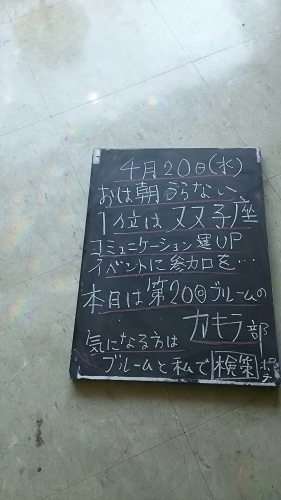 4月20日(水)
おは朝うらない
1位は双子座
コミュニケーション運UP
イベントに参加を…
本日は第20回ブルームの
カキラ部
気になる方は
ブルームと私で検索